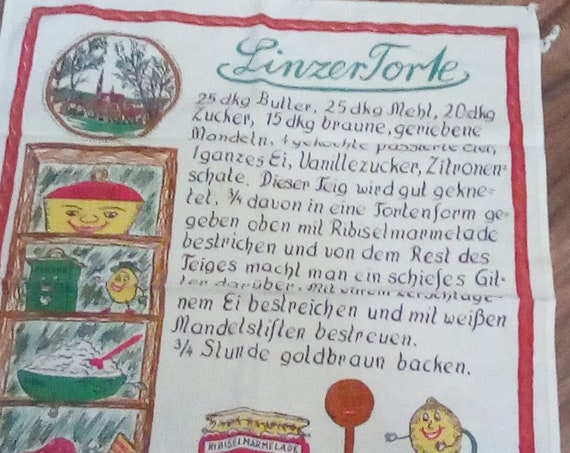 Linzer Torte
25 dkg Butter, 25 dkg Mehl, 20 dkg
Zucker, 15 dkg braune, geriebene
Mandeln, 4 gekochte passierte Eier,
1 ganzes Ei, Vanillezucker, Zitronen-
schale. Dieser Teig wird gut gekne-
tet. ¾ davon in eine Tortenform ge-
geben oben mit Ribiselmarmelade
bestrichen und von dem Rest des
Teiges macht man ein schiefes Git-
ter darüber. Mit einem zerschlage-
nem Ei bestreichen und mit weißen
Mandelstiften bestreuen.
¾ Stunde goldbraun backen.
RIBISELMARMELADE